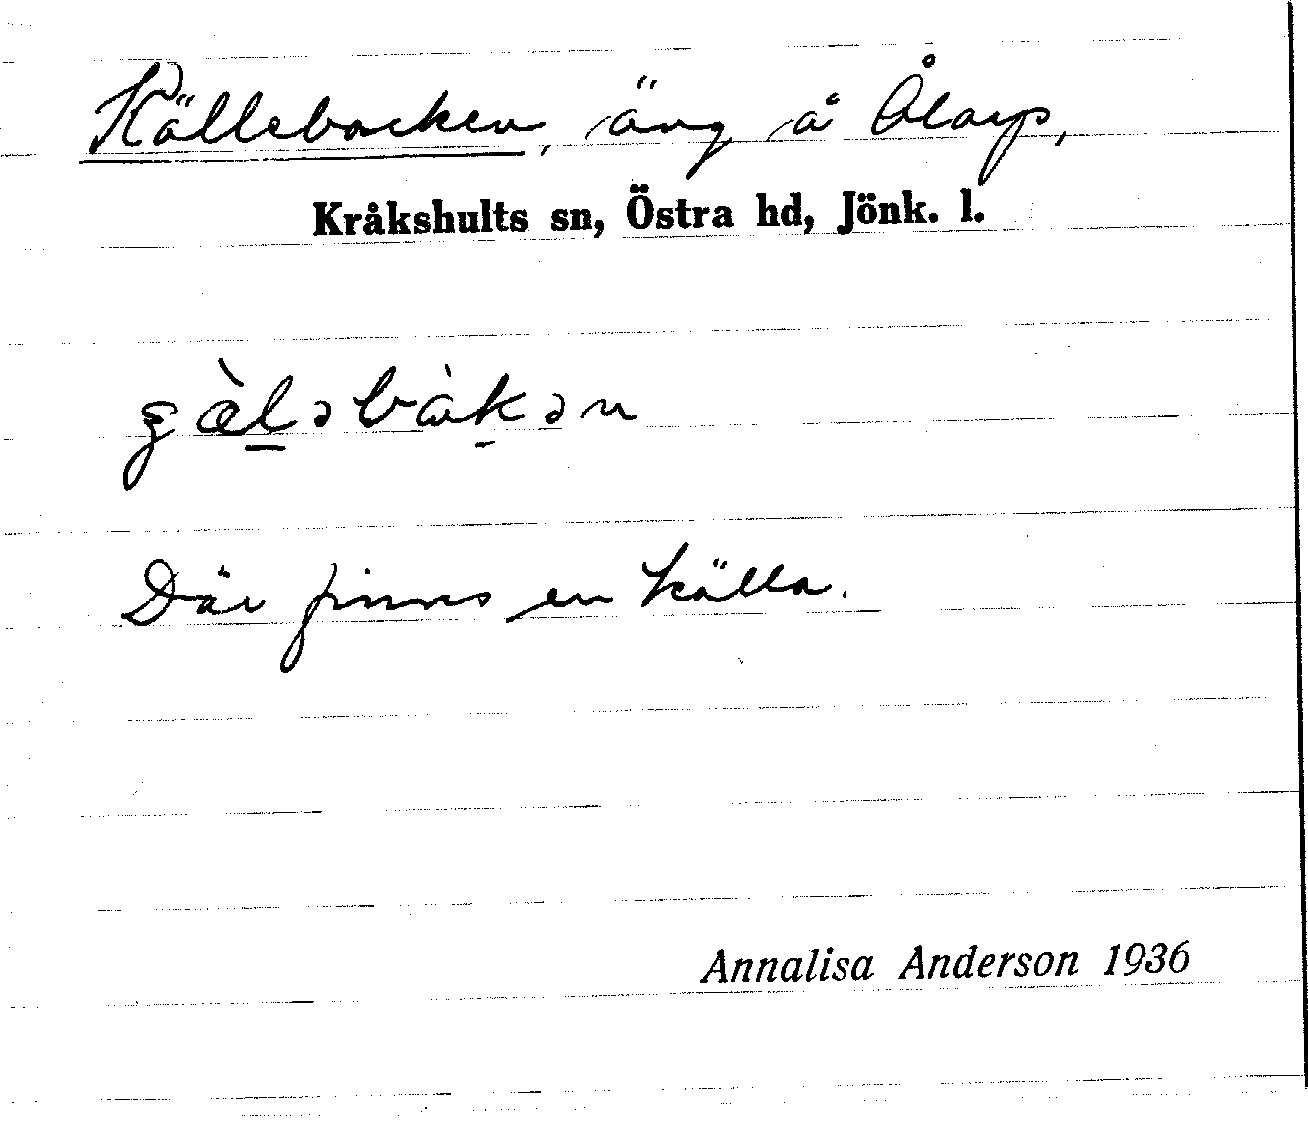 Källebacken, äng å Ålarp,
Kråkshults sn, Östra hd, Jönk. l.
gæ̀l̲əbàk̲ən
Där finns en källa.
Annalisa Anderson 1936